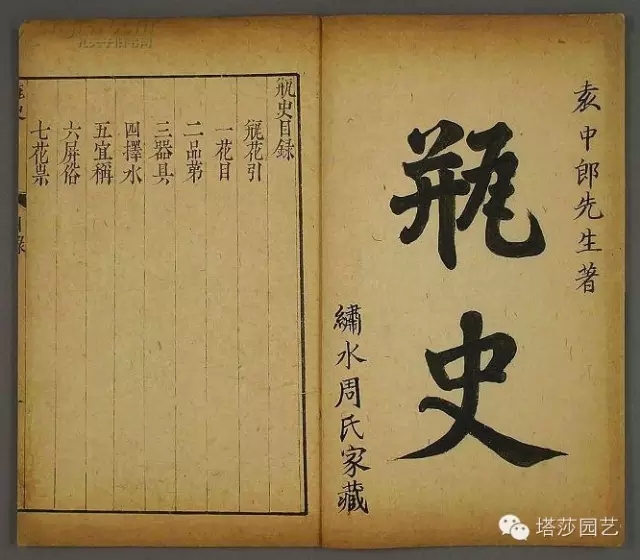 袁中郎先生著
瓶史
繡水周氏家藏
瓶史目録
瓶花引
一花目
二品第
三器具
四擇水
五宜稱
六屏俗
七花祟
塔莎园艺